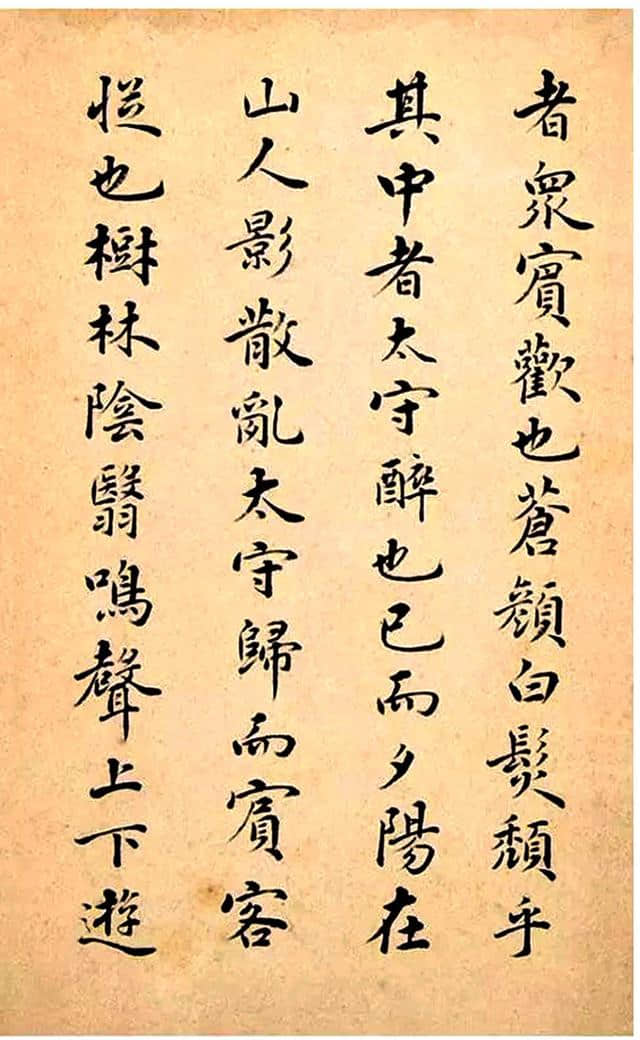 者衆賓歡也蒼顔白髮頽乎
其中者太守醉也已而夕陽在
山人影散亂太守歸而賓客
從也樹林陰翳鳴聲上下遊